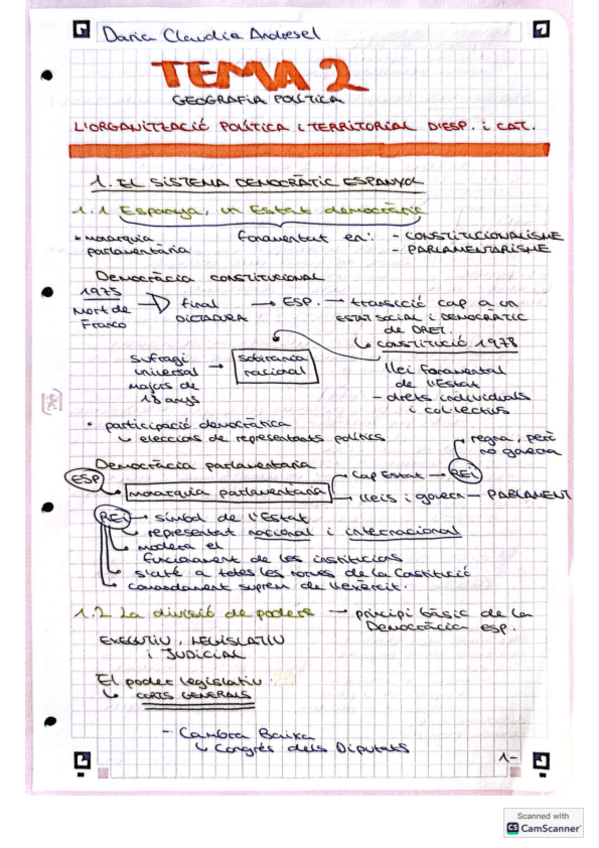 Daria Claudia Andresel
TEMA 2
GEOGRAFIA POLÍTICA
L'ORGANITZACIÓ POLÍTICA i TERRITORIAL D'ESP. i CAT.
1. EL SISTEMA DEMOCRÀTIC ESPANYOL
1.1 Espanya, un Estat democràtic
• monarquia parlamentària
fonamentat en: - CONSTITUCIONALISME
- PARLAMENTARISME
Democràcia constitucional
1975
Mort de Franco
final DICTADURA → ESP. → transició cap a un
ESTAT SOCIAL i DEMOCRÀTIC
de DRET.
↳ CONSTITUCIÓ 1978
Sufragi universal majors de 18 anys → sobirania nacional
llei fonamental
de l'Estat
- drets individuals
i col·lectius
• participació democràtica
↳ eleccions de representants polítics
regna, però
no governa
Democràcia parlamentària
Cap Estat → REI
ESP
monarquia parlamentària
lleis i govern - PARLAMENT
REI → símbol de l'Estat
representat nacional i internacional
modera el
funcionament de les institucions
comandament suprem de l'exèrcit.
1.2 La divisió de poders → principi bàsic de la
Democràcia esp.
EXECUTIU, LEGISLATIU
i JUDICIAL
El poder legislatiu
↳ CORTS GENERALS
- Cambra Baixa
↳ Congrés dels Diputats
1-
Scanned with
CS CamScanner